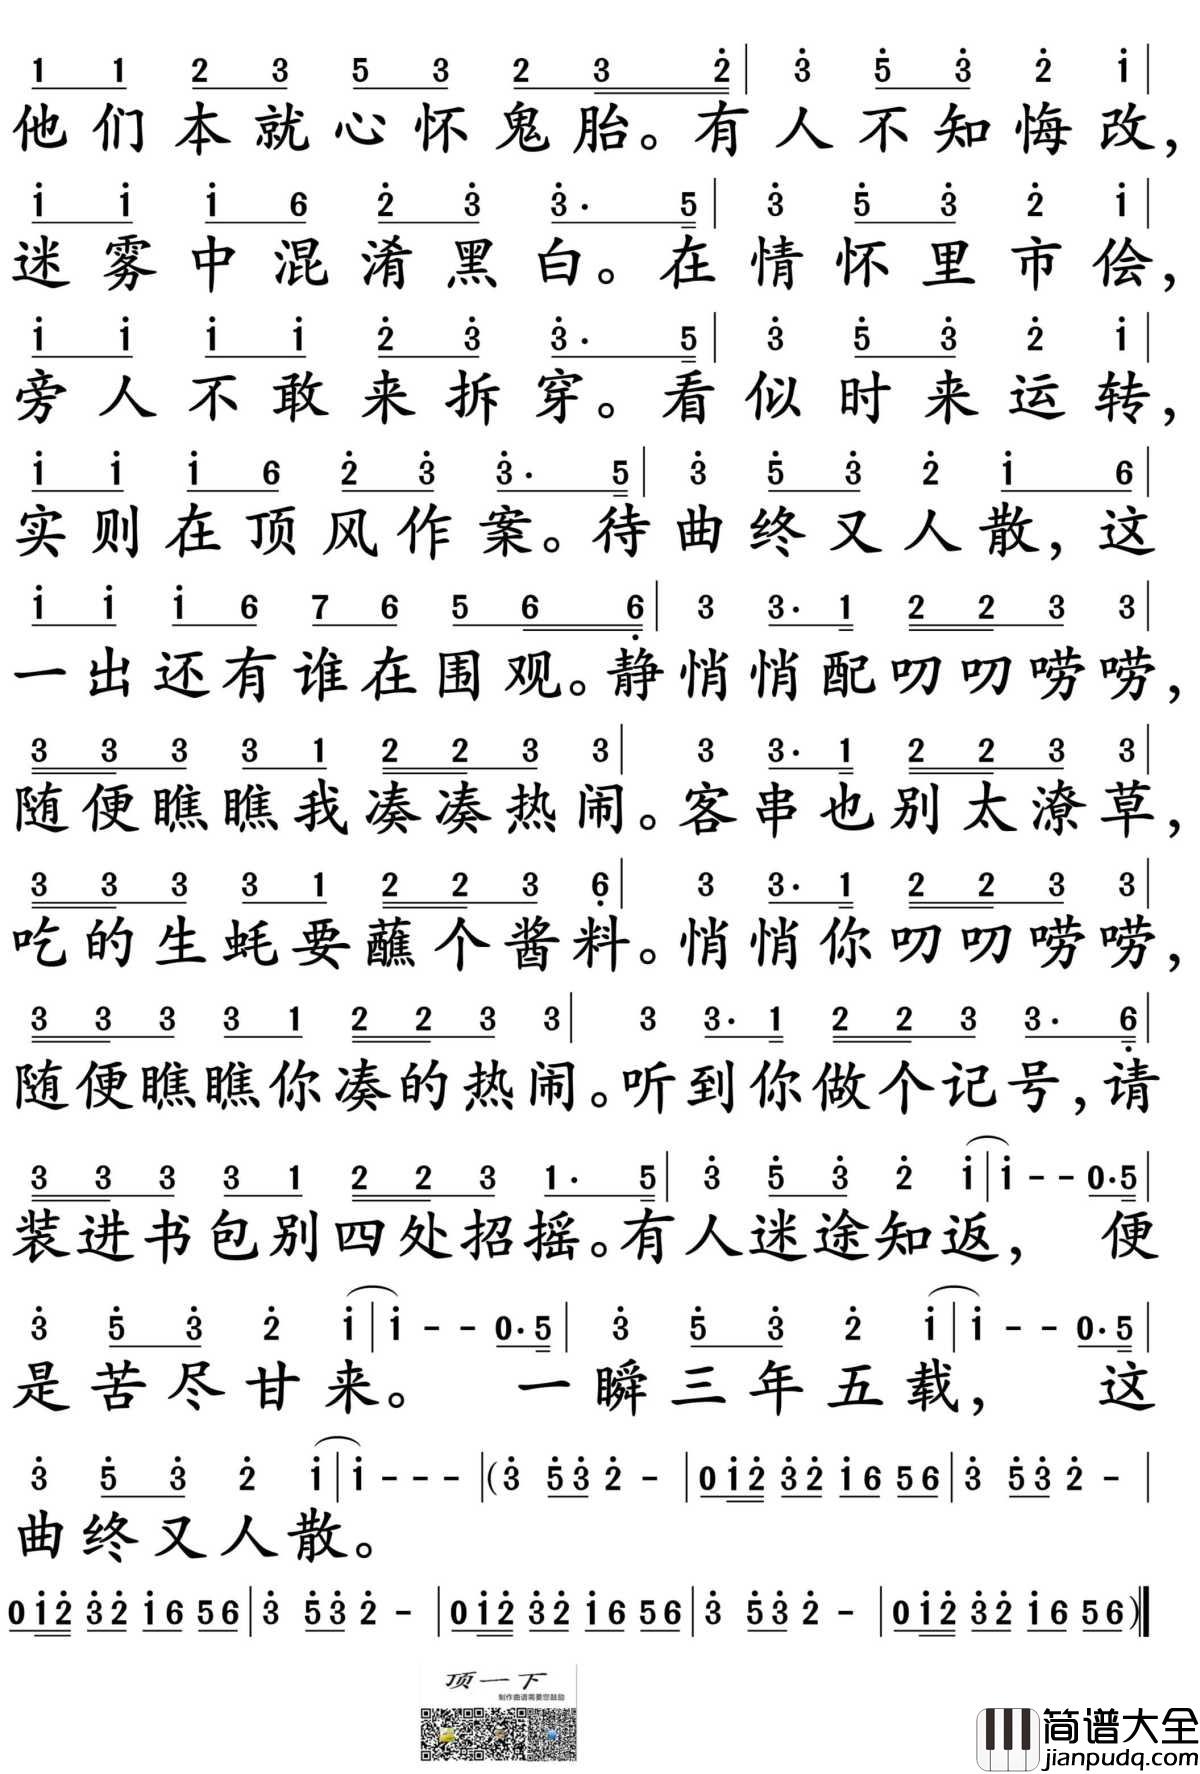 1 1 2 3 5 3 2 3 2̇ | 3̇ 5̇ 3̇ 2̇ 1̇ |
他们本就心怀鬼胎。有人不知悔改，
1̇ 1̇ 1̇ 6 2̇ 3̇ 3̇· 5̇ | 3̇ 5̇ 3̇ 2̇ 1̇ |
迷雾中混淆黑白。在情怀里市侩，
1̇ 1̇ 1̇ 1̇ 2̇ 3̇ 3̇· 5̇ | 3̇ 5̇ 3̇ 2̇ 1̇ |
旁人不敢来拆穿。看似时来运转，
1̇ 1̇ 1̇ 6 2̇ 3̇ 3̇· 5̇ | 3̇ 5̇ 3̇ 2̇ 1̇ 6 |
实则在顶风作案。待曲终又人散，这
1̇ 1̇ 1̇ 6 7 6 5 6 6̣ | 3 3· 1 2 2 3 3 |
一出还有谁在围观。静悄悄配叨叨唠唠，
3 3 3 3 1 2 2 3 3 | 3 3· 1 2 2 3 3 |
随便瞧瞧我凑凑热闹。客串也别太潦草，
3 3 3 3 1 2 2 3 6̣ | 3 3· 1 2 2 3 3 |
吃的生蚝要蘸个酱料。悄悄你叨叨唠唠，
3 3 3 3 1 2 2 3 3 | 3 3· 1 2 2 3 3· 6̣ |
随便瞧瞧你凑的热闹。听到你做个记号，请
3 3 3 3 1 2 2 3 1· 5 | 3̇ 5̇ 3̇ 2̇ 1̇ | 1̇ - - 0·5̇ |
装进书包别四处招摇。有人迷途知返， 便
3̇ 5̇ 3̇ 2̇ 1̇ | 1̇ - - 0·5̇ | 3̇ 5̇ 3̇ 2̇ 1̇ | 1̇ - - 0·5̇ |
是苦尽甘来。 一瞬三年五载， 这
3̇ 5̇ 3̇ 2̇ 1̇ | 1̇ - - - | (3̇ 5̇3̇ 2̇ - | 01̇2̇ 3̇2̇ 1̇6 56 | 3̇ 5̇3̇ 2̇ - |
曲终又人散。
01̇2̇ 3̇2̇ 1̇6 56 | 3̇ 5̇3̇ 2̇ - | 01̇2̇ 3̇2̇ 1̇6 56 | 3̇ 5̇3̇ 2̇ - | 01̇2̇ 3̇2̇ 1̇6 56 ) ‖
顶一下
制作曲谱需要您鼓励
简谱大全
jianpudq.com